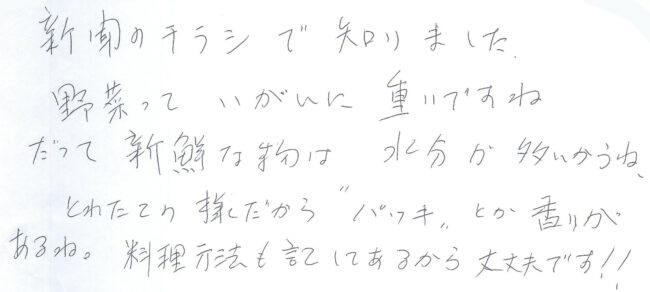 新聞のチラシで知りました。
野菜って いがいに 重いですね
だって 新鮮な物は 水分が 多いからね、
とれたての 様だから "パリッキ„ とか 香りが
あるね。 料理方法も記してあるから 丈夫です!!